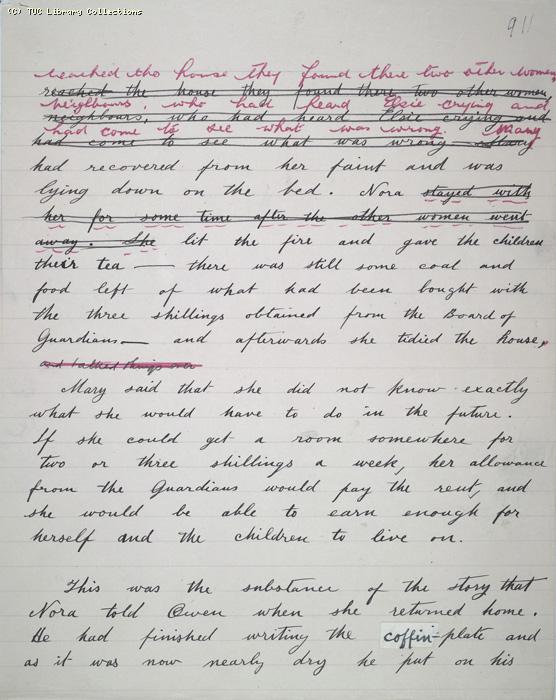 (C) TUC Library Collections
911
reached the house they found there two other women,
reached the house they found there two other women
neighbours, who had heard Elsie crying and
neighbours, who had heard Elsie crying and
had come to see what was wrong. Mary
had come to see what was wrong. Mary
had recovered from her faint and was
lying down on the bed. Nora stayed with
her for some time after the other women went
away. She lit the fire and gave the children
their tea — there was still some coal and
food left of what had been bought with
the three shillings obtained from the Board of
Guardians — and afterwards she tidied the house,
and talked things over
Mary said that she did not know exactly
what she would have to do in the future.
If she could get a room somewhere for
two or three shillings a week, her allowance
from the Guardians would pay the rent, and
she would be able to earn enough for
herself and the children to live on.
This was the substance of the story that
Nora told Owen when she returned home.
He had finished writing the coffin-plate and
as it was now nearly dry he put on his